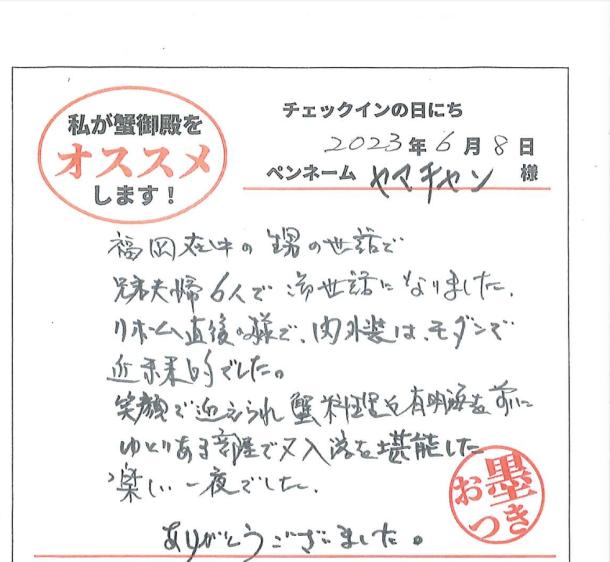 私が蟹御殿を
オススメ
します！
チェックインの日にち
2023年6月8日
ペンネーム ヤマチャン 様
福岡在中の甥の世話で
兄弟夫婦6人で御世話になりました。
リホーム直後の様で、内外装は、モダンで
近未来的でした。
笑顔で迎えられ蟹料理と有明海を前に
ゆとりある部屋で又入浴を堪能した
楽しい一夜でした。
ありがとうございました。
お墨
つき